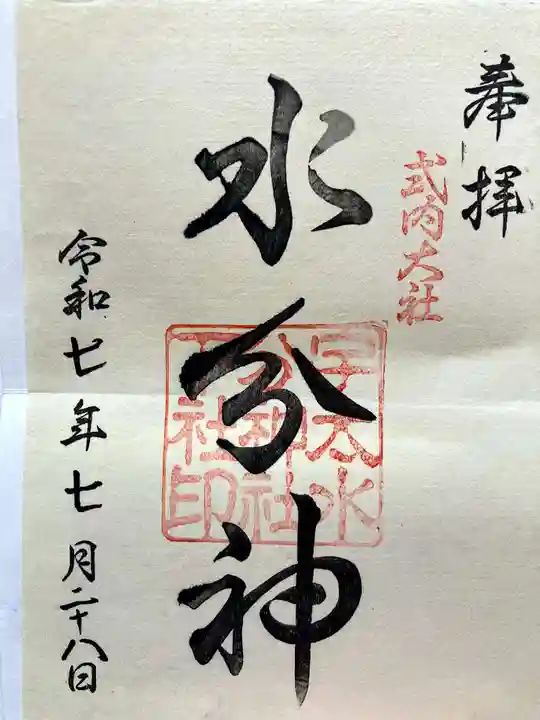 奉拝
式内大社
水分神
宇太水
分神社
下社印
令和七年七月二十八日